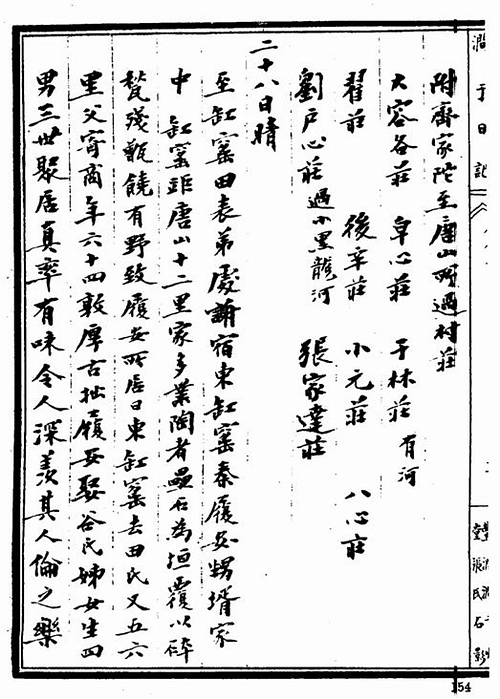 澗于日記
附齊家陀至唐山所過村莊
大容各莊　皁心莊　于林莊有河
翟莊　後辛莊　小元莊　八心莊
劉戶心莊過小黑龍河　張家達莊
二十八日晴
至缸窰田表弟處誦宿東缸窰秦履安甥壻家
中缸窰距唐山十二里家多業陶者壘石為垣覆以碎
甃殘甎饒有野致履安所居曰東缸窰去田氏又五六
里父甯商年六十四敦厚古拙履安娶谷氏姊女生四
男三世聚居真率有味令人深羨其人倫之樂
堂張氏石影
154